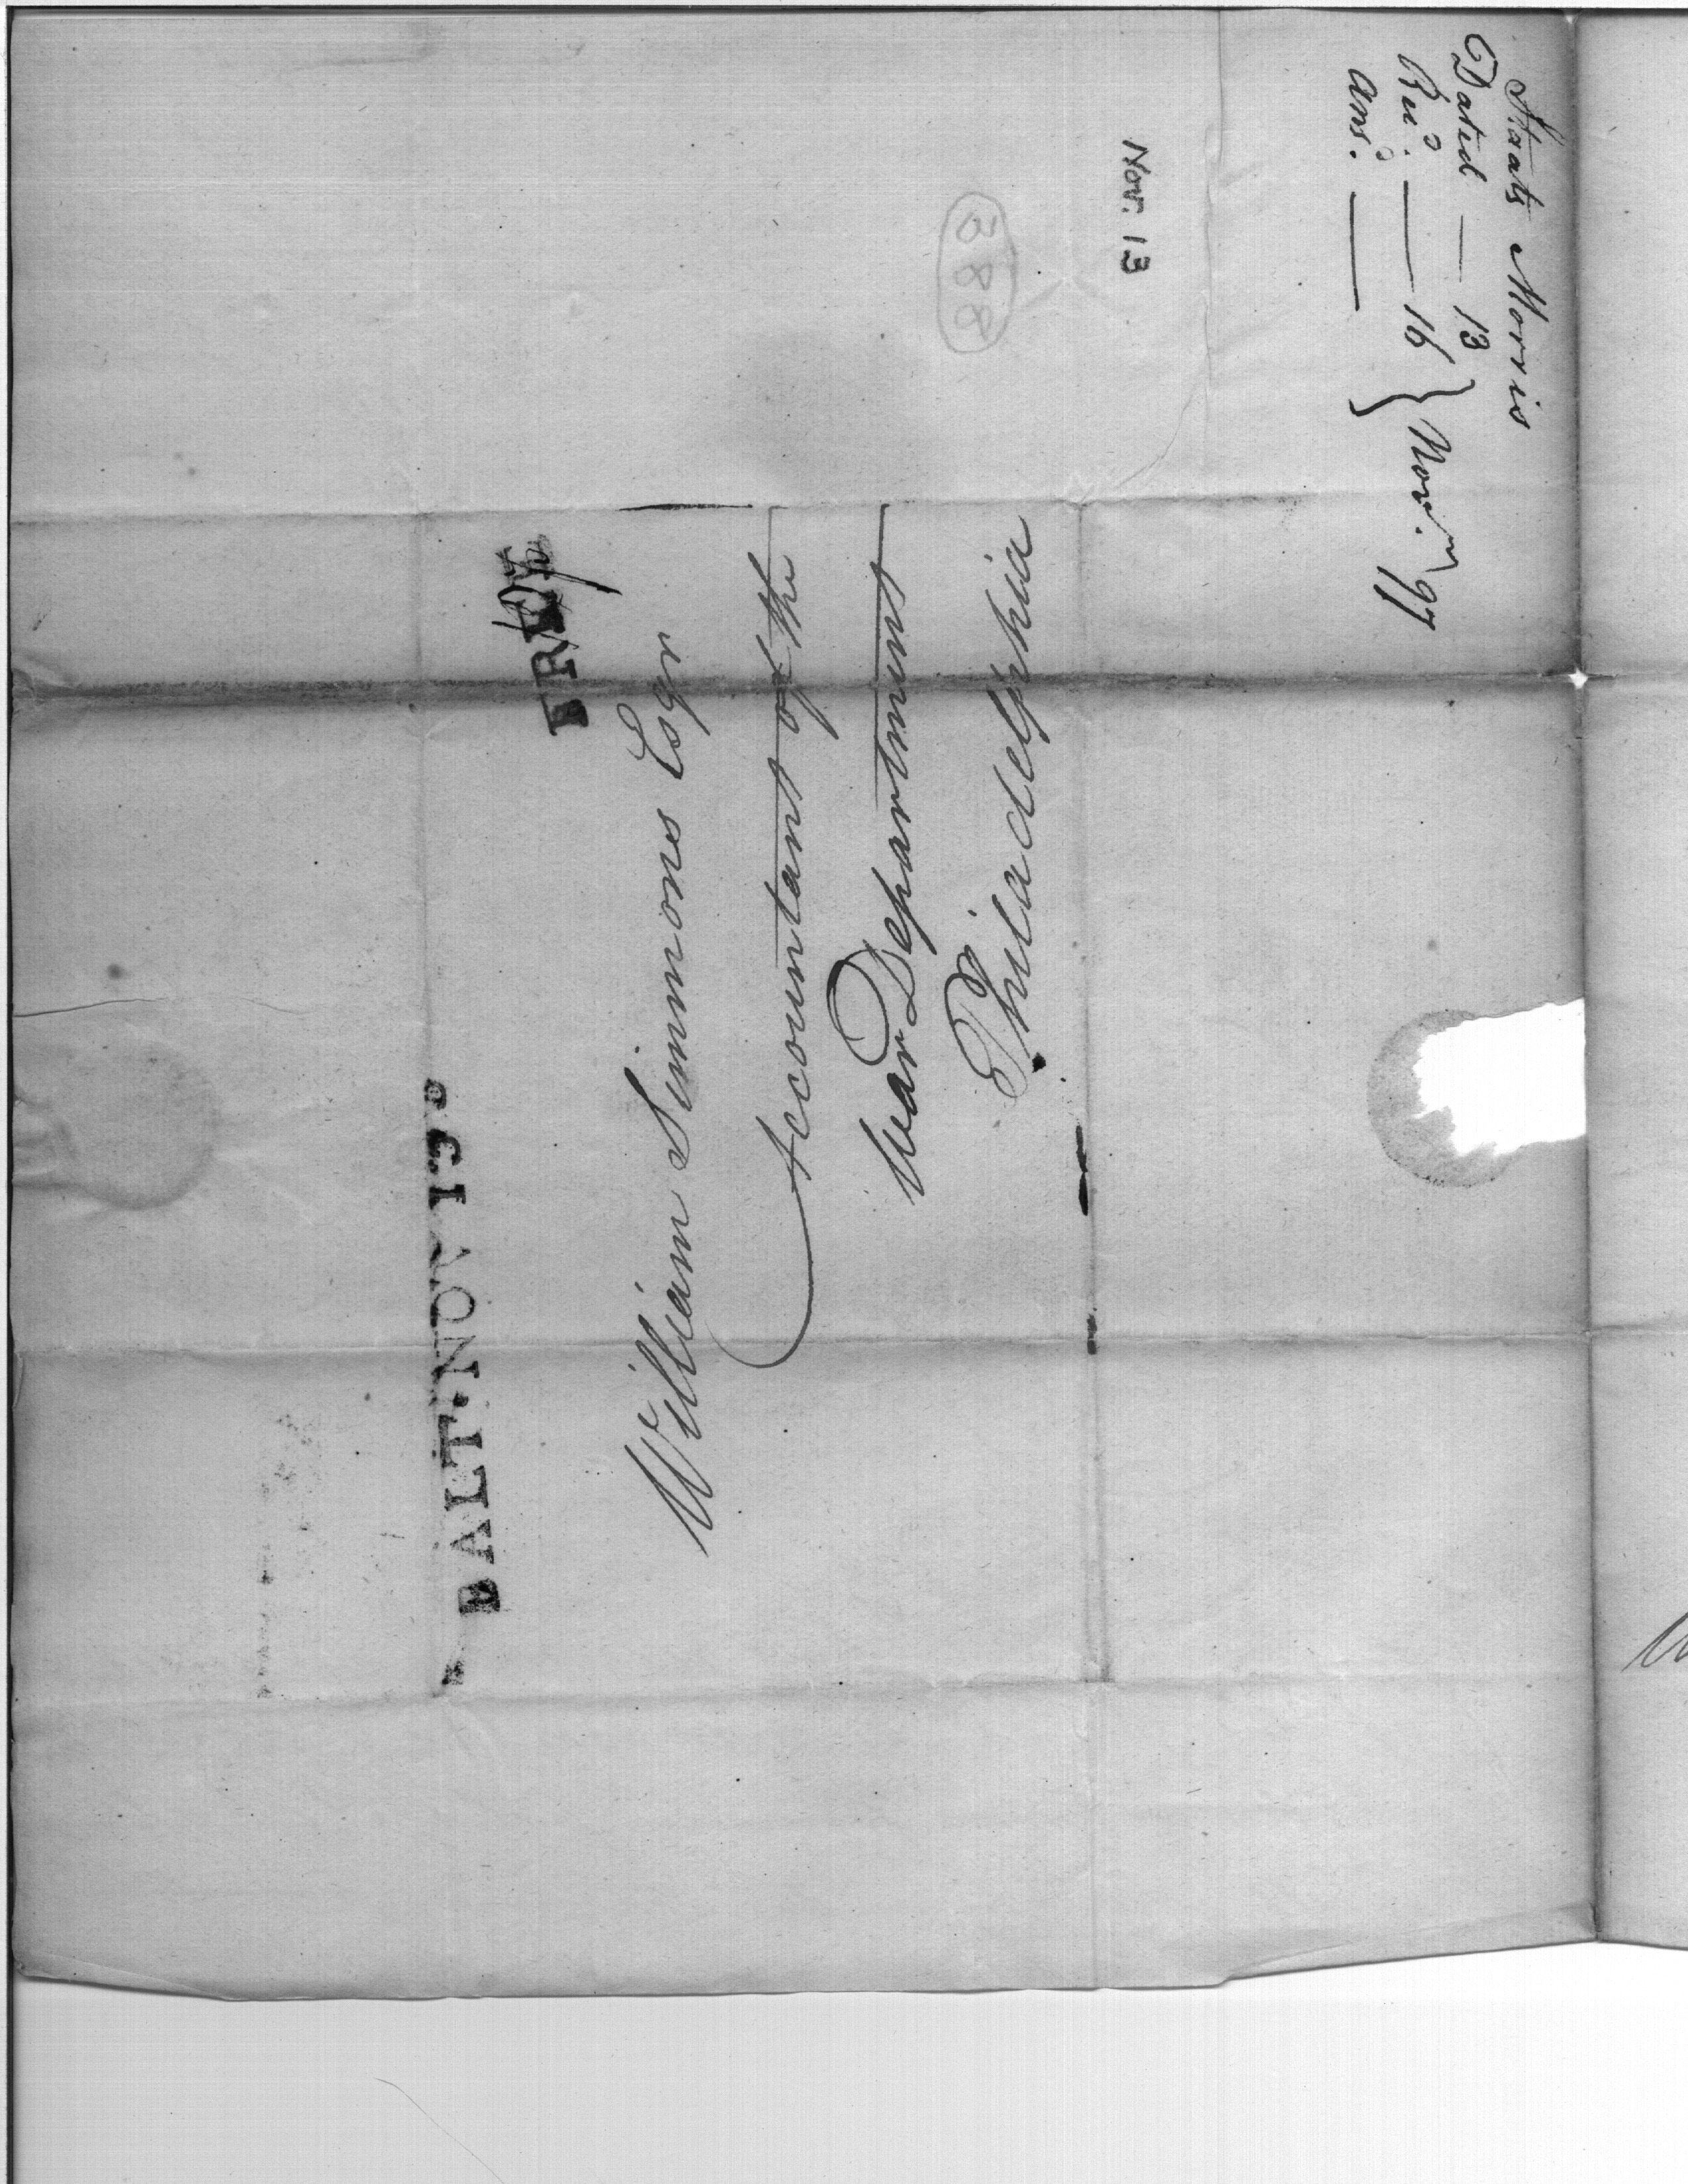 Staats Morris
Dated — 13
Recd. — 16 } Novr. 97
Ansd. —
Nov. 13
388
BALT. NOV 13
FREE
William Simmons Esqr
Accountant of the
War Department
Philadelphia